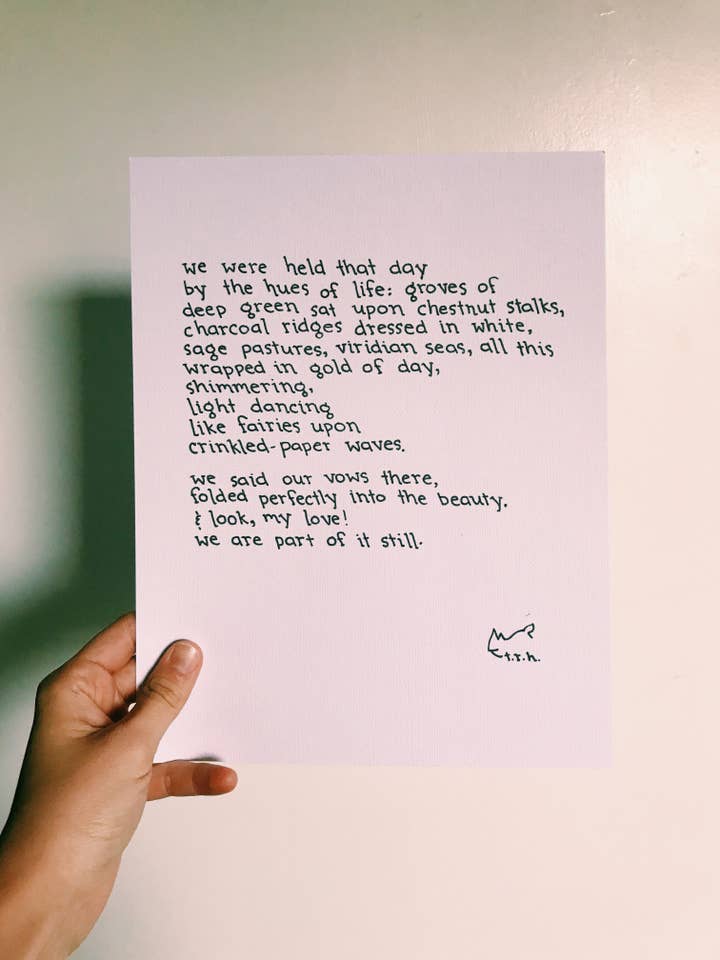 we were held that day
by the hues of life: groves of
deep green sat upon chestnut stalks,
charcoal ridges dressed in white,
sage pastures, viridian seas, all this
wrapped in gold of day,
shimmering,
light dancing
like fairies upon
crinkled-paper waves.
we said our vows there,
folded perfectly into the beauty.
& look, my love!
we are part of it still.
t.r.h.